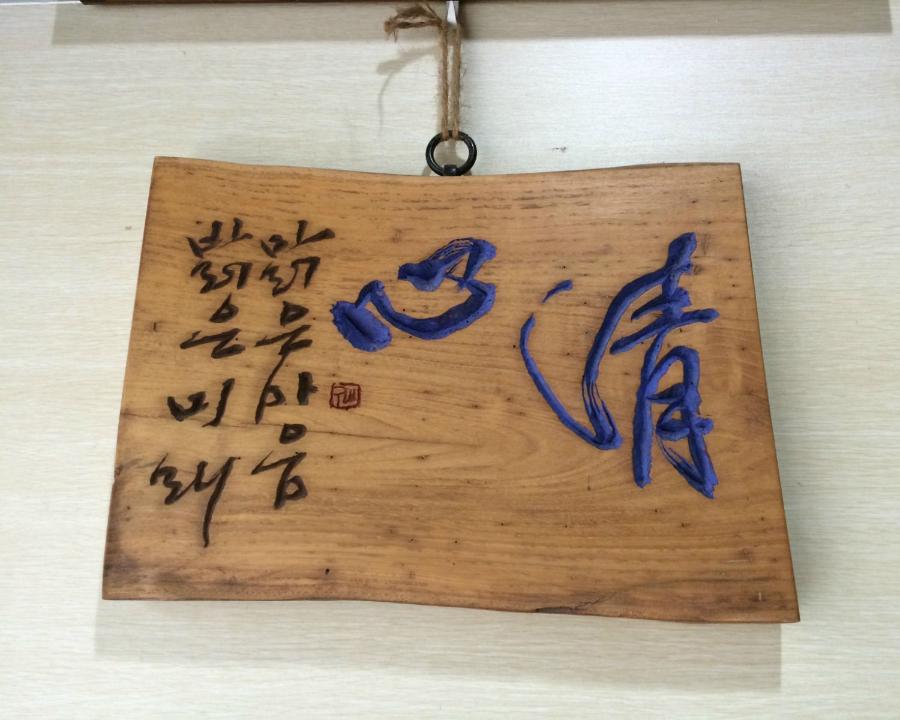 清心
맑은 마음
밝은 미래